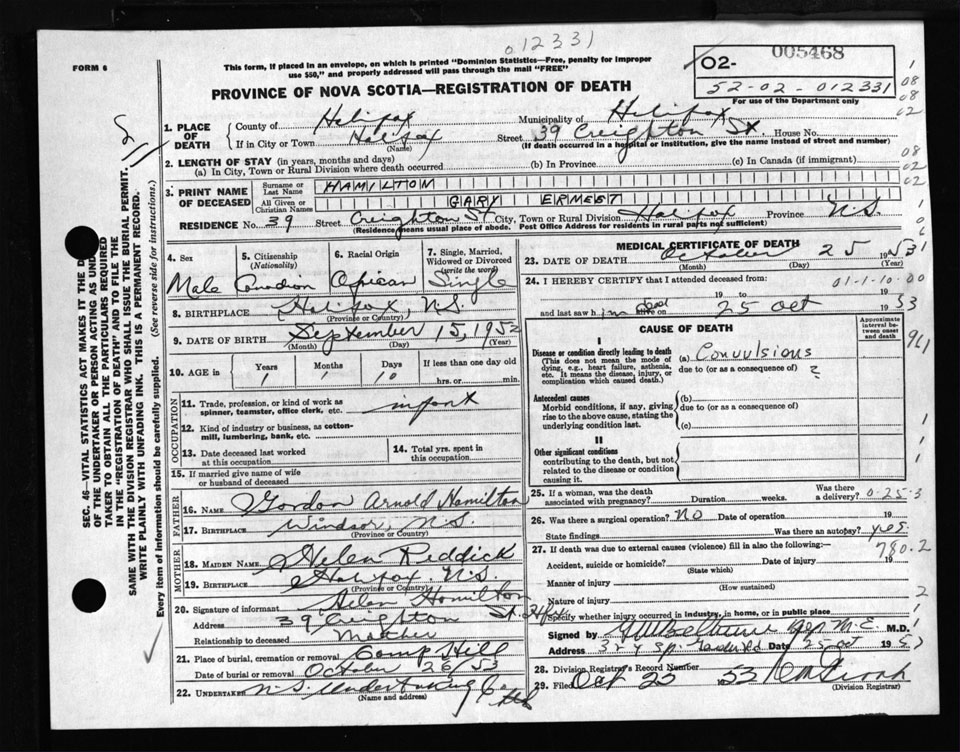 012331
FORM 6
This form, if placed in an envelope, on which is printed "Dominion Statistics—Free, penalty for improper
use $50," and properly addressed will pass through the mail "FREE"
005468
02-
52-02-012331
For use of the Department only
PROVINCE OF NOVA SCOTIA—REGISTRATION OF DEATH
1. PLACE OF DEATH
County of Halifax Municipality of Halifax
If in City or Town Halifax Street 39 Creighton St. House No.
(Name) (If death occurred in a hospital or institution, give the name instead of street and number)
2. LENGTH OF STAY (in years, months and days)
(a) In City, Town or Rural Division where death occurred (b) In Province (c) In Canada (if immigrant)
3. PRINT NAME OF DECEASED
Surname or Last Name HAMILTON
All Given or Christian Names GARY ERNEST
RESIDENCE No. 39 Street Creighton St City, Town or Rural Division Halifax Province N.S.
(Residence means usual place of abode. Post Office Address for residents in rural parts not sufficient)
4. Sex
Male
5. Citizenship (Nationality)
Canadian
6. Racial Origin
African
7. Single, Married, Widowed or Divorced (write the word)
Single
8. BIRTHPLACE Halifax, N.S.
(Province or Country)
9. DATE OF BIRTH September 15, 1952
(Month) (Day) (Year)
10. AGE in Years Months Days If less than one day old
1 1 10 hrs. or min.
OCCUPATION
11. Trade, profession, or kind of work as
spinner, teamster, office clerk, etc. infant
12. Kind of industry or business, as cotton-
mill, lumbering, bank, etc.
13. Date deceased last worked
at this occupation
14. Total yrs. spent in
this occupation
15. If married give name of wife
or husband of deceased
FATHER
16. NAME Gordon Arnold Hamilton
17. BIRTHPLACE Windsor, N.S.
(Province or Country)
MOTHER
18. MAIDEN NAME Helen Reddick
19. BIRTHPLACE Halifax N.S.
(Province or Country)
20. Signature of informant Helen Hamilton
Address 39 Creighton St. Hfx
Relationship to deceased Mother
21. Place of burial, cremation or removal Camp Hill
Date of burial or removal October 26/53
22. UNDERTAKER N.S. Undertaking Co
(Name and address)
MEDICAL CERTIFICATE OF DEATH
23. DATE OF DEATH October 25 1953
(Month) (Day) (Year)
24. I HEREBY CERTIFY that I attended deceased from:
01-1-10-00
19 to 19
and last saw him dead alive on 25 Oct 1953
CAUSE OF DEATH
Approximate interval between onset and death
I
Disease or condition directly leading to death (a) Convulsions
(This does not mean the mode of dying, e.g., heart failure, asthenia, etc. It means the disease, injury, or complication which caused death.)
due to (or as a consequence of) ?
Antecedent causes
Morbid conditions, if any, giving rise to the above cause, stating the underlying condition last.
(b)
due to (or as a consequence of)
(c)
II
Other significant conditions
contributing to the death, but not related to the disease or condition causing it.
25. If a woman, was the death
associated with pregnancy? Duration weeks. Was there a delivery? 0-25-3
26. Was there a surgical operation? NO Date of operation 19
State findings Was there an autopsy? yes
780.2
27. If death was due to external causes (violence) fill in also the following:—
Accident, suicide or homicide? Date of injury 19
(State which)
Manner of injury
(How sustained)
Nature of injury
Specify whether injury occurred in industry, in home, or in public place
Signed by M.D.
Address Date 25 Oct 1953
28. Division Registrar's Record Number
29. Filed Oct 25 1953
(Division Registrar)
SEC. 46—VITAL STATISTICS ACT MAKES IT THE
OF THE UNDERTAKER OR PERSON ACTING AS UND
TAKER TO OBTAIN ALL THE PARTICULARS REQUIRED
IN THE "REGISTRATION OF DEATH" AND TO FILE THE
SAME WITH THE DIVISION REGISTRAR WHO SHALL ISSUE THE BURIAL PERMIT.
WRITE PLAINLY WITH UNFADING INK. THIS IS A PERMANENT RECORD.
Every item of information should be carefully supplied. (See reverse side for instructions.)